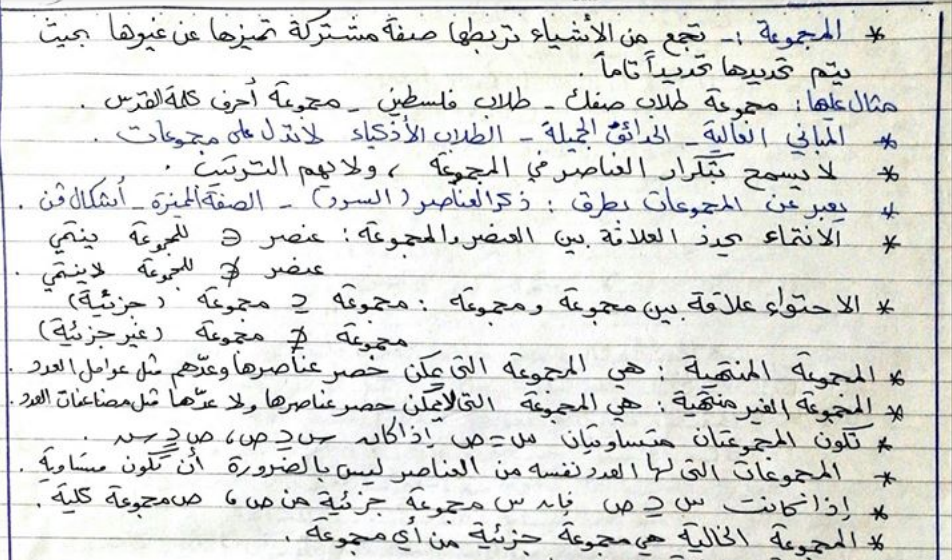 * المجموعة :- تجمع من الأشياء تربطها صفة مشتركة تميزها عن غيرها بحيث
يتم تحديدها تحديداً تاماً .
مثال عليها : مجموعة طلاب صفك - طلاب فلسطين - مجموعة أحرف كلمة القدس .
* المباني العالية - الحدائق الجميلة - الطلاب الأذكياء لا تدل على مجموعات .
* لا يسمح بتكرار العناصر في المجموعة ، ولا يهم الترتيب .
* يعبر عن المجموعات بطرق : ذكر العناصر (السرد) - الصفة المميزة - أشكال فن .
* الانتماء يحدد العلاقة بين العنصر والمجموعة : عنصر ∋ للمجموعة ينتمي
عنصر ∌ للمجموعة لا ينتمي .
* الاحتواء علاقة بين مجموعة ومجموعة : مجموعة ⊇ مجموعة (جزئية)
مجموعة ⊉ مجموعة (غير جزئية)
* المجموعة المنتهية : هي المجموعة التي يمكن حصر عناصرها وعدّهم مثل عوامل العدد .
* المجموعة الغير منتهية : هي المجموعة التي لا يمكن حصر عناصرها ولا عدّها مثل مضاعفات العدد .
* تكون المجموعتان متساويتان س = ص إذا كان س ⊇ ص ، ص ⊇ س .
* المجموعات التي لها العدد نفسه من العناصر ليس بالضرورة أن تكون متساوية .
* إذا كانت س ⊇ ص فإن س مجموعة جزئية من ص ، ص مجموعة كلية .
* المجموعة الخالية هي مجموعة جزئية من أي مجموعة .